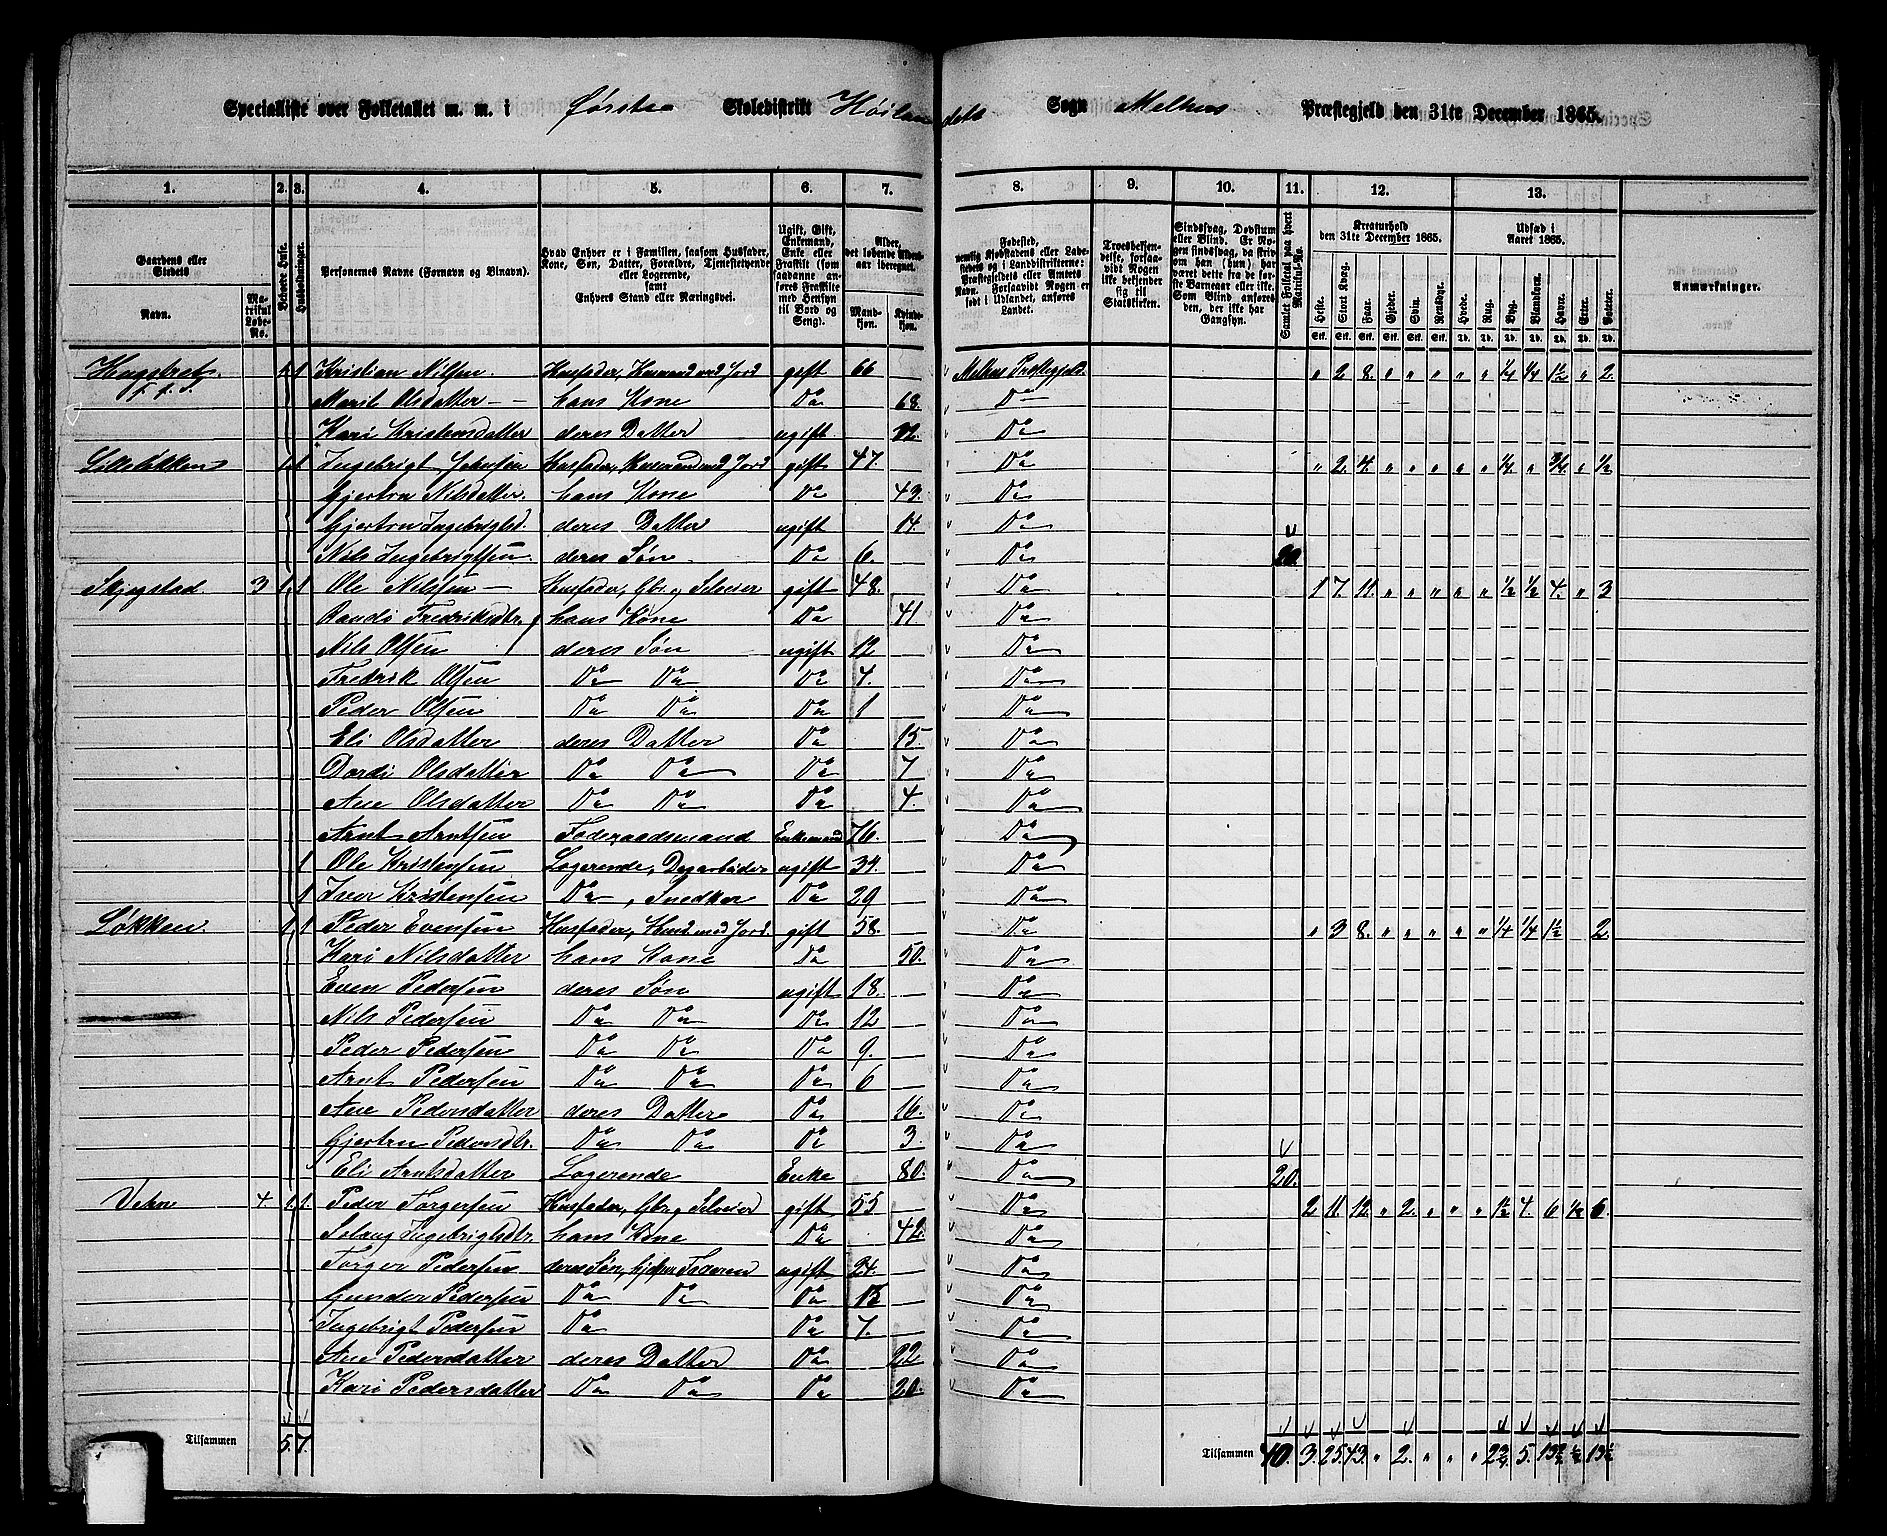 Specialliste over Folketallet m. m. i Skoledistrikt Høilandets Sogn Melhus Præstegjeld den 31te December 1865.
1. 2. 3. 4. 5. 6. 7. 8. 9. 10. 11. 12. 13.
Gaardens eller Stedets Navn. Matrikul Løbe-No.
Beboede Huse.
Husholdninger.
Personernes Navne (Fornavn og Binavn).
Hvad Enhver er i Familien, saasom Husfader, Kone, Søn, Datter, Forældre, Tjenestetyende eller Logerende, samt Enhvers Stand eller Næringsvei.
Ugift, Gift, Enkemand, Enke eller Fraskilt (som saadanne anføres Fraskilte med Hensyn til Bord og Seng).
Alder, det løbende Alders-aar iberegnet. Mand-kjøn. Kvinde-kjøn.
Fødested, nemlig Kjøbstadens eller Ladestedets og i Landdistrikterne: Præstegjeldets eller Amtets Navn. Forsaavidt Nogen er født i Udlandet, anføres Landet.
Troesbekjendelse, forsaavidt Nogen ikke bekjender sig til Statskirken.
Sindssvag, Døvstum eller Blind. Er Nogen sindssvag, da skriv om han (hun) har været dette fra de første Barneaar eller ikke. Som Blind anføres den, der ikke har Gangsyn.
Samlet Folketal paa hvert Matrikul-No.
Kreaturhold den 31te December 1865. Heste. Stort Kvæg. Faar. Gjeder. Svin. Rensdyr.
Udsæd i Aaret 1865. Hvede. Rug. Byg. Blandkorn. Havre. Erter. Poteter.
Anmærkninger.
1 1 Kristian Nilsen Husfader, Husmand med Jord gift 66 Melhus Præstegjeld. " 2 8. " " " " " ¼ ¼ 1½ " 2.
Marit Olsdatter hans Kone Do 68. Do
Kari Kristensdatter deres Datter ugift Do
Lilleløkken 1 1 Ingebrigt Johnsen Husfader, Husmand med Jord gift 47. Do " 2. 4. " " " " " ¼ " ¾ " ½
Gjertru Nilsdatter. hans Kone Do 43. Do
Gjertru Ingebrigtsd. deres Datter ugift 14. Do
Nils Ingebrigtsen deres Søn Do 6. Do 20.
Skjegstad 3 1 1 Ole Nilsen Husfader, Gbr. og Selveier gift 48. Do 1 7. 11. " " " " " ½ ½ 4. " 3
Randi Fredriksdtr. hans Kone Do 41 Do
Nils Olsen deres Søn ugift 12 Do
Fredrik Olsen Do Do Do 4. Do
Peder Olsen Do Do Do 1 Do
Eli Olsdatter deres Datter Do 15. Do
Dordi Olsdatter Do Do Do 7 Do
Ane Olsdatter Do Do Do 4. Do
Arnt Arntsen Føderaadsmand Enkemand 76. Do
1 Ole Kristensen Logerende, Dagarbeider ugift 34. Do
1 Iver Kristensen Do, Snedker Do 29 Do
Løkken 1 1 Peder Evensen Husfader, Husmd. med Jord. gift 58. Do " 3 8. " " " " " ¼ ¼ 1½ 2.
Kari Nilsdatter hans Kone Do 50. Do
Even Pedersen deres Søn ugift 18. Do
Nils Pedersen Do Do Do 12 Do
Peder Pedersen Do Do Do 9. Do
Arnt Pedersen Do Do Do 6 Do
Ane Pedersdatter deres Datter Do 16. Do
Gjertru Pedersdtr. Do Do Do 3. Do
Eli Arntsdatter Logerende Enke 80. Do 20.
4 1. 1. Peder Torgersen Husfader, Gbr. og Selveier gift 55 Do 2 11. 12. " 2. " " " 1½ 4. 6 ½ 6.
Solaug Ingebrigtsdtr. hans Kone Do 42. Do
Torger Pedersen deres Søn, hjelper Faderen ugift 24. Do
Gunder Pedersen Do Do Do Do
Ingebrigt Pedersen Do Do 7. Do
Ane Pedersdatter deres Datter Do 22. Do
Kari Pedersdatter Do Do Do 20. Do
Tilsammen 5. 7. Tilsammen 40. 3. 25. 43. " 2. " " " 2¾ 5. 13¾ ½ 13½